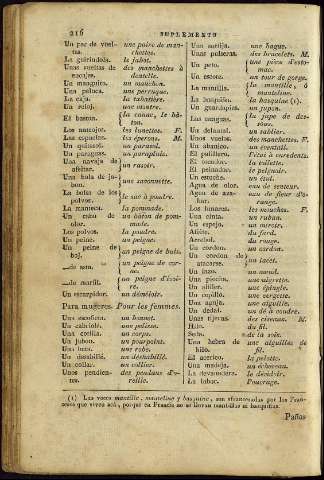 216 SUPLEMENTO
Un par de vueltas. une paire de manchettes.
La guirindola. le jabot.
Unas vueltas de encajes. des manchettes à dentelle.
Un manguito. un manchon.
Una peluca. une perruque.
La caja. la tabatière.
Un relox. une montre.
El baston. la canne, le bâton.
Los anteojos. les lunettes. F.
Las espuelas. les éperons. M.
Un quitasol. un parasol.
Un paraguas. un parapluie.
Una navaja de afeitar. un rasoir.
Una bola de jabon. une savonnette.
La bolsa de los polvos. le sac à poudre.
La manteca. la pommade.
Los polvos. la poudre.
Un peine. un peigne.
Un peine de boj. un peigne de buis.
un peigne de corne.
...de marfil. un peigne d'ivoire.
Un escarpidor. un démêloir.
Para mugeres. Pour les femmes.
Una escofieta. un bonnet.
Una cotilla. un corps.
Un jubon. un pourpoint.
Una bata. une robe.
Un deshabillé. un déshabillé.
Un collar. un collier.
Unos pendientes. des pendans d'oreille.
Una sortija. une bague.
Unas pulseras. des bracelets. M.
Un peto. une pièce d'estomac.
un tour de gorge.
La mantilla. la mantille, ó manteline.
La basquiña. la basquine (1).
Un guardapies. un jupon.
Un delantal. un tablier.
Unas vueltas. des manchettes. F.
Un abanico. un éventail.
El palillero. l'étui à curedents.
El tocador. la toilette.
El peinador. le peignoir.
Un estuche. un étui.
Agua de olor. eau de senteur.
Agua de azahar. eau de fleur d'orange.
Los lunares. les mouches. F.
Una cinta. un ruban.
Un espejo. un miroir.
Afeite. du fard.
Arrebol. du rouge.
Un cordon. un cordon.
Un cordon de atacarse. un lacet.
Un alfiler. une épingle.
Un cepillo. une vergette.
Una aguja. une aiguille.
Un dedal. un dé à coudre.
Unas tijeras. des ciseaux. M.
Hilo. du fil.
Seda. de la soie.
Una hebra de hilo. une aiguillée de fil.
El acerico. la pelotte.
Una madeja. un écheveau.
La devanadera. le dévidoir.
La labor. l'ouvrage.
(1) Las voces mantille, manteline y basquine, son afrancesadas por los Franceses que viven acá, porque en Francia no se llevan mantillas ni basquiñas.
Paños